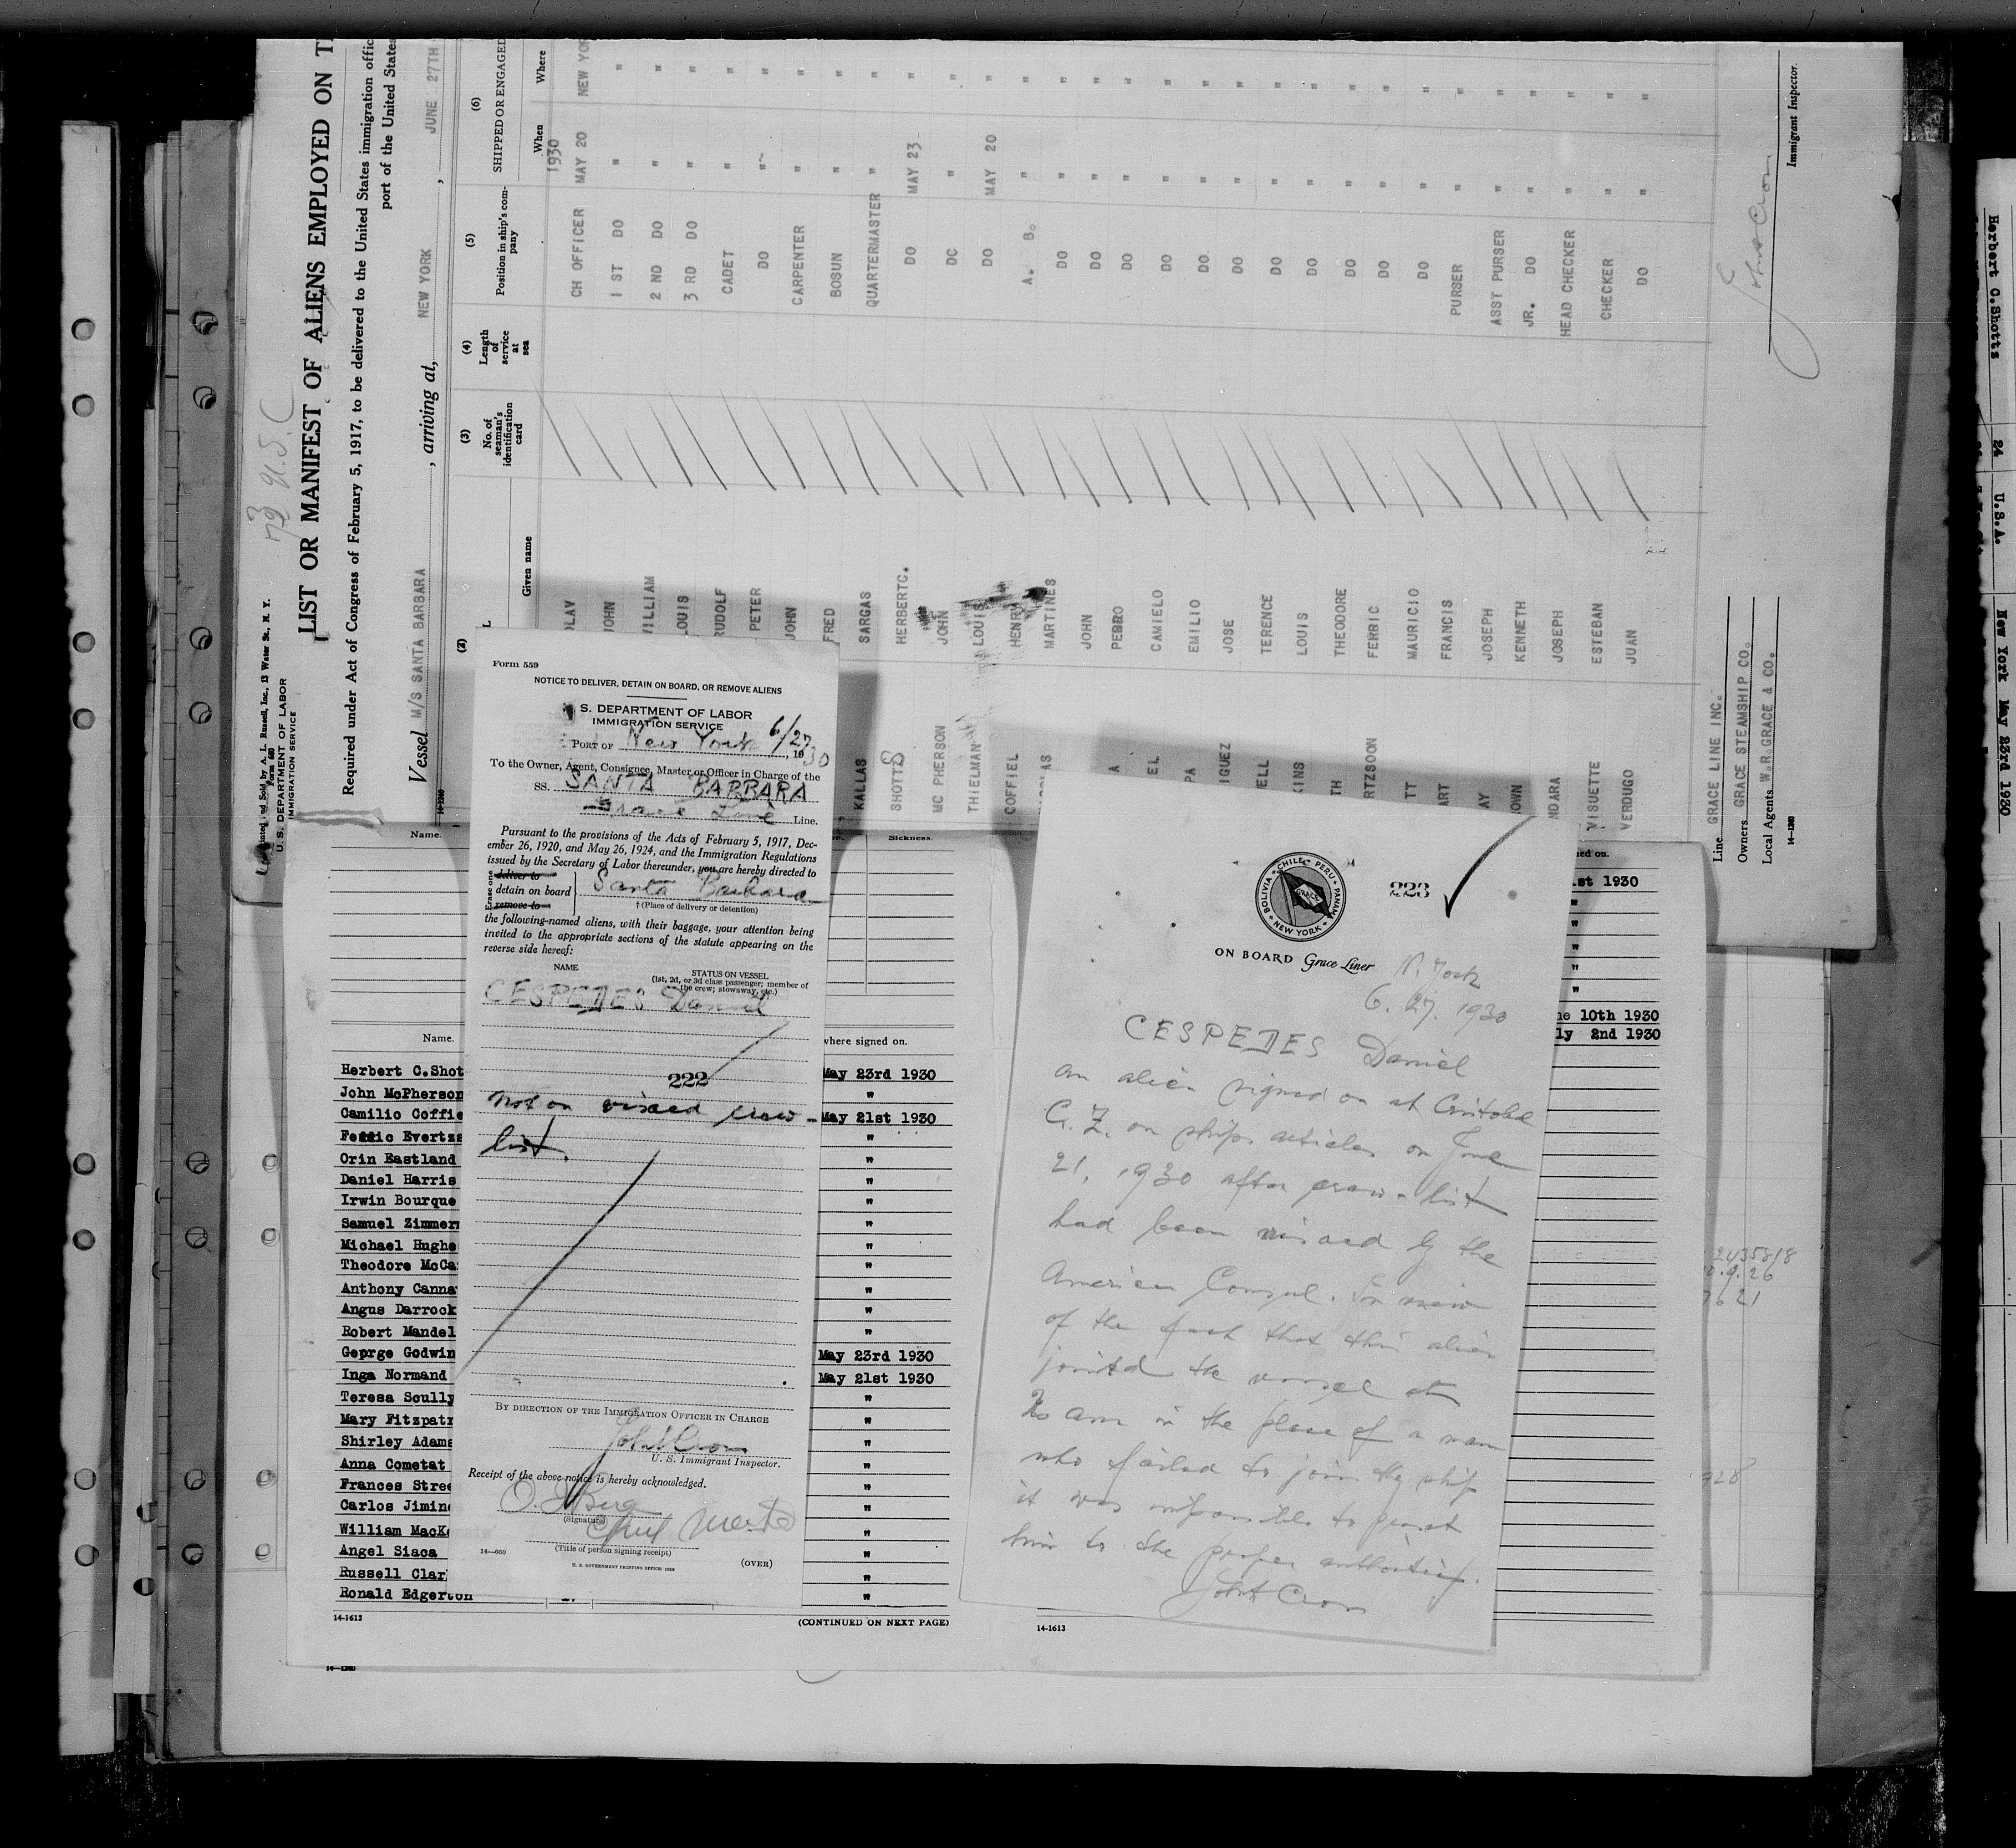 73 U.S.C
Printed and Sold by A. L. Russell, Inc., 13 Water St., N. Y.
Form 680
U. S. DEPARTMENT OF LABOR
IMMIGRATION SERVICE
LIST OR MANIFEST OF ALIENS EMPLOYED ON T
Required under Act of Congress of February 5, 1917, to be delivered to the United States immigration offic
port of the United States
Vessel M/S SANTA BARBARA , arriving at, NEW YORK , JUNE 27TH
14-1240
(2) (3) (4) (5) (6)
No. of seaman's identification card
Length of service at sea
Position in ship's company
SHIPPED OR ENGAGED
Given name When Where
1930
OLAV CH OFFICER MAY 20 NEW YOR
JOHN 1 ST DO " "
WILLIAM 2 ND DO " "
LOUIS 3 RD DO " "
RUDOLF CADET " "
PETER DO " "
JOHN CARPENTER " "
FRED BOSUN " "
KALLAS SARGAS QUARTERMASTER " "
SHOTTS HERBERTC. DO MAY 23 "
MC PHERSON JOHN DC " "
THIELMAN LOUIS DO MAY 20 "
COFFIEL HENRY A. B. " "
AS MARTINES DO " "
JOHN DO " "
A PEDRO DO " "
EL CAMIELO DO " "
PA EMILIO DO " "
IGUEZ JOSE DO " "
ELL TERENCE DO " "
INS LOUIS DO " "
TH THEODORE DO " "
RTZSON FERRIC DO " "
TT MAURICIO DO " "
ART FRANCIS PURSER " "
AY JOSEPH ASST PURSER " "
OWN KENNETH JR. DO " "
NDARA JOSEPH HEAD CHECKER " "
VISUETTE ESTEBAN CHECKER " "
VERDUGO JUAN DO " "
Line GRACE LINE INC.
Owners GRACE STEAMSHIP CO.
Local Agents W.R.GRACE & CO.
14-1240
John Cron
Immigrant Inspector.
Form 559
NOTICE TO DELIVER, DETAIN ON BOARD, OR REMOVE ALIENS
S. DEPARTMENT OF LABOR
IMMIGRATION SERVICE
PORT OF New York 6/27, 1930
To the Owner, Agent, Consignee, Master or Officer in Charge of the
SS. SANTA BARBARA
Grace Line Line.
Pursuant to the provisions of the Acts of February 5, 1917, Dec-
ember 26, 1920, and May 26, 1924, and the Immigration Regulations
issued by the Secretary of Labor thereunder, you are hereby directed to
Erase one
deliver to
detain on board Santa Barbara
remove to
† (Place of delivery or detention)
the following-named aliens, with their baggage, your attention being
invited to the appropriate sections of the statute appearing on the
reverse side hereof:
NAME STATUS ON VESSEL
(1st, 2d, or 3d class passenger; member of
the crew; stowaway, etc.)
CESPEDES Daniel
222
Not on visaed crew-
list.
BY DIRECTION OF THE IMMIGRATION OFFICER IN CHARGE
John Cron
U. S. Immigrant Inspector.
Receipt of the above notice is hereby acknowledged.
O. J. Berg
(Signature)
Chief Mate
(Title of person signing receipt)
14—660
U. S. GOVERNMENT PRINTING OFFICE: 1929
(OVER)
BOLIVIA CHILE PERU PANAMA NEW YORK
GRACE
223
ON BOARD Grace Liner
N. York
6. 27. 1930
CESPEDES Daniel
an alien signed on at Cristobal
C. Z. on ships articles on June
21, 1930 after crew-list
had been visaed by the
American Consul. In view
of the fact that this alien
joined the vessel at
2 am in the place of a man
who failed to join the ship
it was impossible to present
him to the proper authority.
John Cron
Name. Sickness.
Name. where signed on.
Herbert C.Shot May 23rd 1930
John McPherson "
Camilio Coffie May 21st 1930
Ferric Evertzs "
Orin Eastland "
Daniel Harris "
Irwin Bourque "
Samuel Zimmerm "
Michael Hughe "
Theodore McCa "
Anthony Canna "
Angus Darrock "
Robert Mandel "
George Godwin May 23rd 1930
Inga Normand May 21st 1930
Teresa Scully "
Mary Fitzpatr "
Shirley Adams "
Anna Cometat "
Frances Stree "
Carlos Jimine "
William MacK "
Angel Siaca "
Russell Clar "
Ronald Edgerton "
14-1613
(CONTINUED ON NEXT PAGE)
14-1613
14—1240
ed on.
1st 1930
"
"
"
"
"
ne 10th 1930
ly 2nd 1930
2435818
0.9.26
7621
928
Herbert C.Shotts 24 U.S.A. New York May 23rd 1930